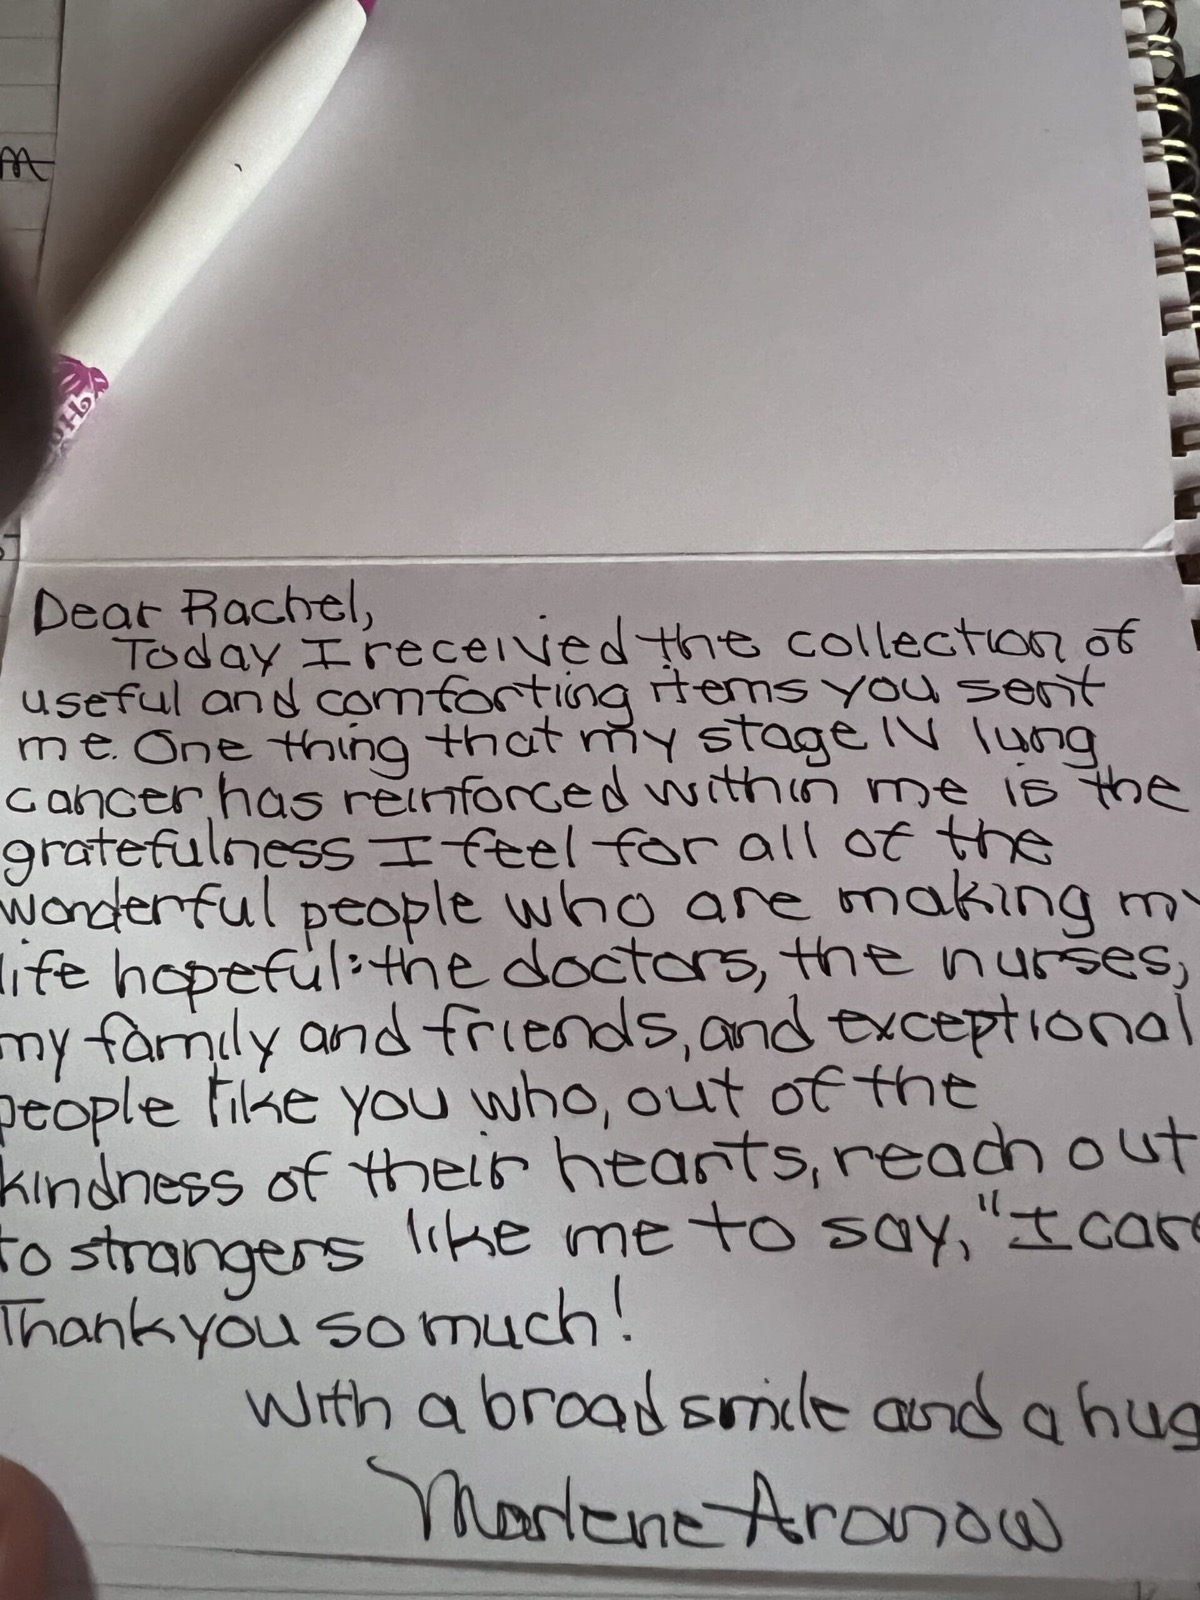 Dear Rachel,
Today I received the collection of
useful and comforting items you sent
me. One thing that my stage IV lung
cancer has reinforced within me is the
gratefulness I feel for all of the
wonderful people who are making my
life hopeful: the doctors, the nurses,
my family and friends, and exceptional
people like you who, out of the
kindness of their hearts, reach out
to strangers like me to say, "I care
Thank you so much!
With a broad smile and a hug
Marlene Aronow